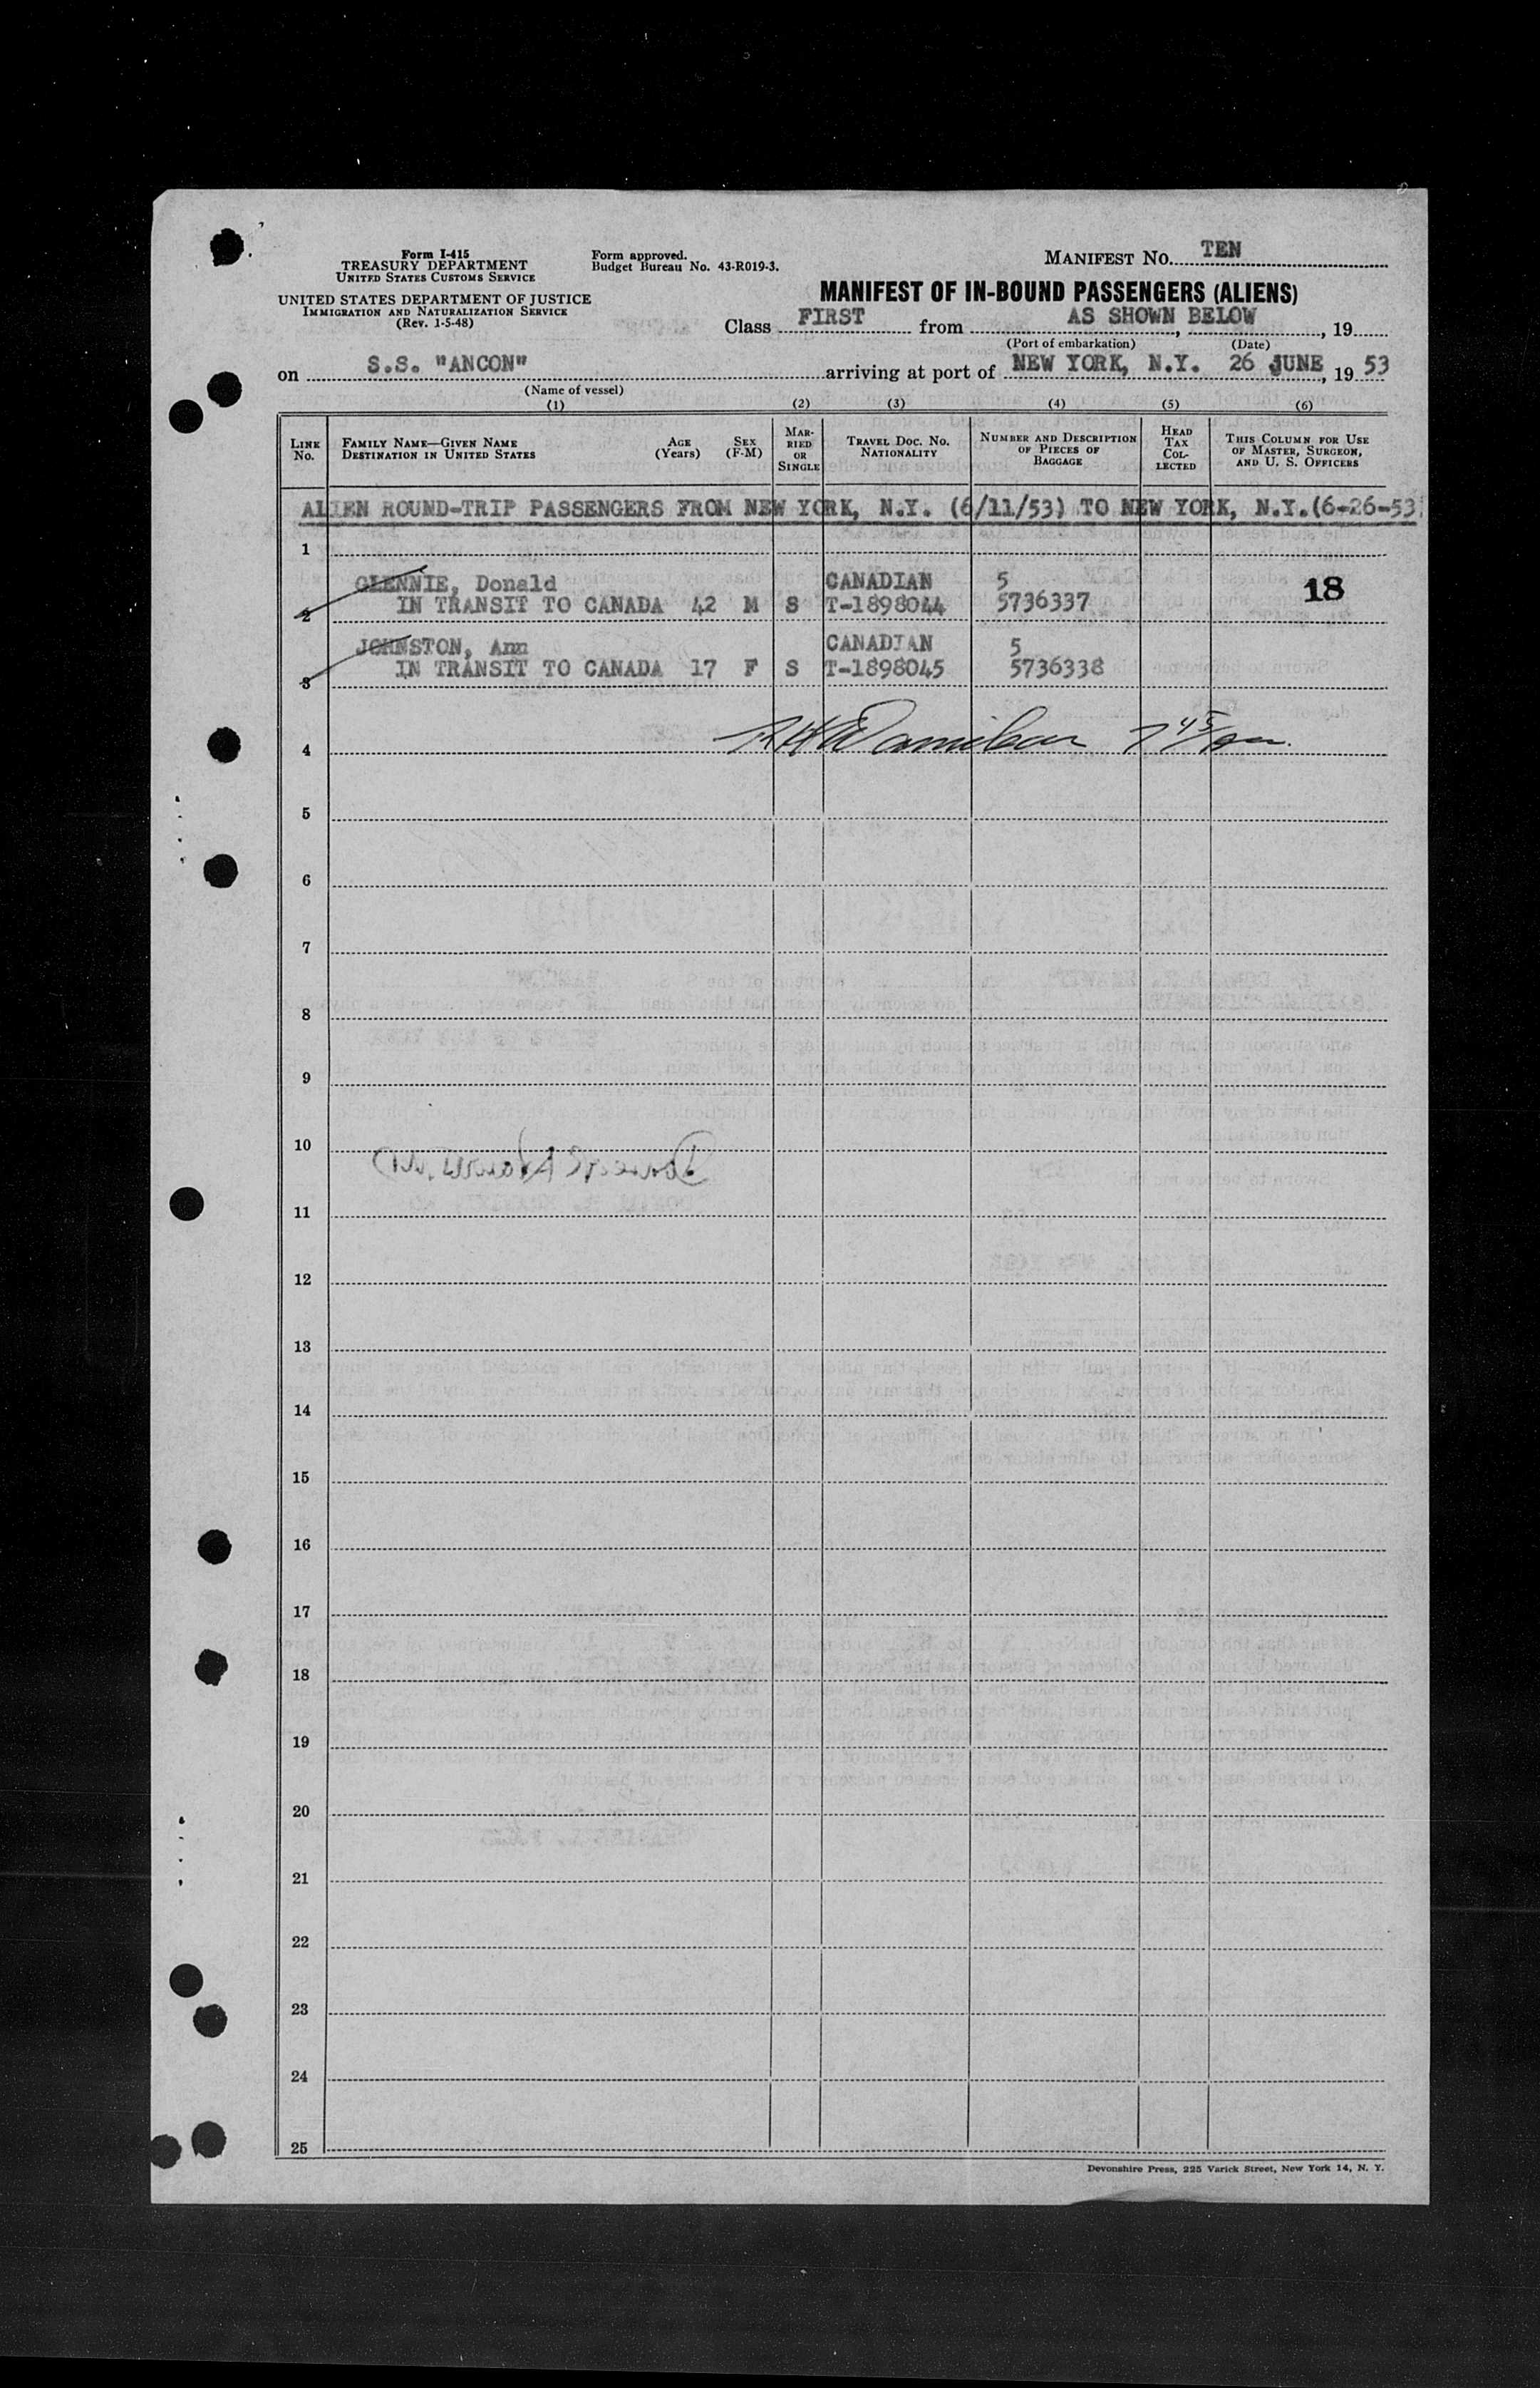 Form I-415
TREASURY DEPARTMENT
UNITED STATES CUSTOMS SERVICE
UNITED STATES DEPARTMENT OF JUSTICE
IMMIGRATION AND NATURALIZATION SERVICE
(Rev. 1-5-48)
Form approved.
Budget Bureau No. 43-R019-3.
MANIFEST No. TEN
MANIFEST OF IN-BOUND PASSENGERS (ALIENS)
Class FIRST from AS SHOWN BELOW, , 19
(Port of embarkation) (Date)
on S.S. "ANCON" arriving at port of NEW YORK, N.Y. 26 JUNE, 19 53
(Name of vessel)
(1) (2) (3) (4) (5) (6)
LINE No. FAMILY NAME—GIVEN NAME DESTINATION IN UNITED STATES AGE (Years) SEX (F-M) MARRIED OR SINGLE TRAVEL DOC. NO. NATIONALITY NUMBER AND DESCRIPTION OF PIECES OF BAGGAGE HEAD TAX COLLECTED THIS COLUMN FOR USE OF MASTER, SURGEON, AND U. S. OFFICERS
ALIEN ROUND-TRIP PASSENGERS FROM NEW YORK, N.Y. (6/11/53) TO NEW YORK, N.Y.(6-26-53
1
GLENNIE, Donald CANADIAN 5 18
2 IN TRANSIT TO CANADA 42 M S T-1898044 5736337
JOHNSTON, Ann CANADIAN 5
3 IN TRANSIT TO CANADA 17 F S T-1898045 5736338
4
5
6
7
8
9
10
11
12
13
14
15
16
17
18
19
20
21
22
23
24
25
Devonshire Press, 225 Varick Street, New York 14, N. Y.